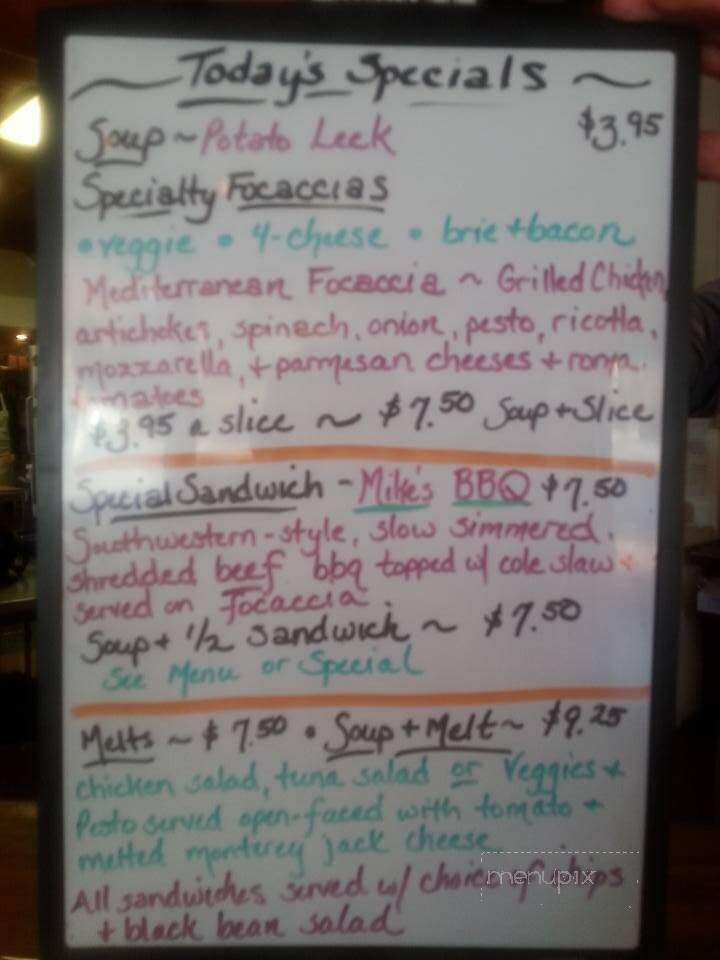 ~ Today's Specials ~
Soup ~ Potato Leek $3.95
Specialty Focaccias
• veggie • 4-cheese • brie + bacon
Mediterranean Focaccia ~ Grilled Chicken,
artichokes, spinach, onion, pesto, ricotta,
mozzarella, + parmesan cheeses + roma
tomatoes
$3.95 a slice ~ $7.50 Soup + Slice
Special Sandwich - Mike's BBQ $7.50
Southwestern-style, slow simmered,
shredded beef bbq topped w/ cole slaw +
served on Focaccia.
Soup + 1/2 Sandwich ~ $7.50
See Menu or Special
Melts ~ $7.50 • Soup + Melt ~ $9.25
chicken salad, tuna salad or Veggies +
Pesto served open-faced with tomato +
melted monterey jack cheese
All sandwiches served w/ choice of chips
+ black bean salad
menupix